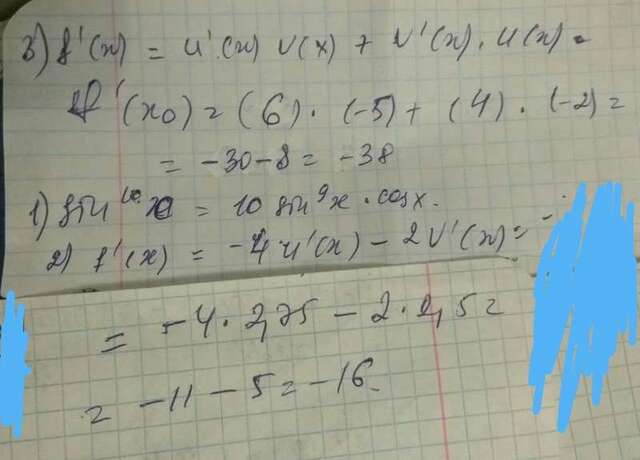 3) f'(x) = u'(x) v(x) + v'(x) · u(x) =
f'(x0) = (6) · (-5) + (4) · (-2) =
= -30-8 = -38
1) sin¹⁰x = 10 sin⁹x · cosx.
2) f'(x) = -4 u'(x) - 2 v'(x) =
= -4 · 2,75 - 2 · 2,5 =
= -11 - 5 = -16.